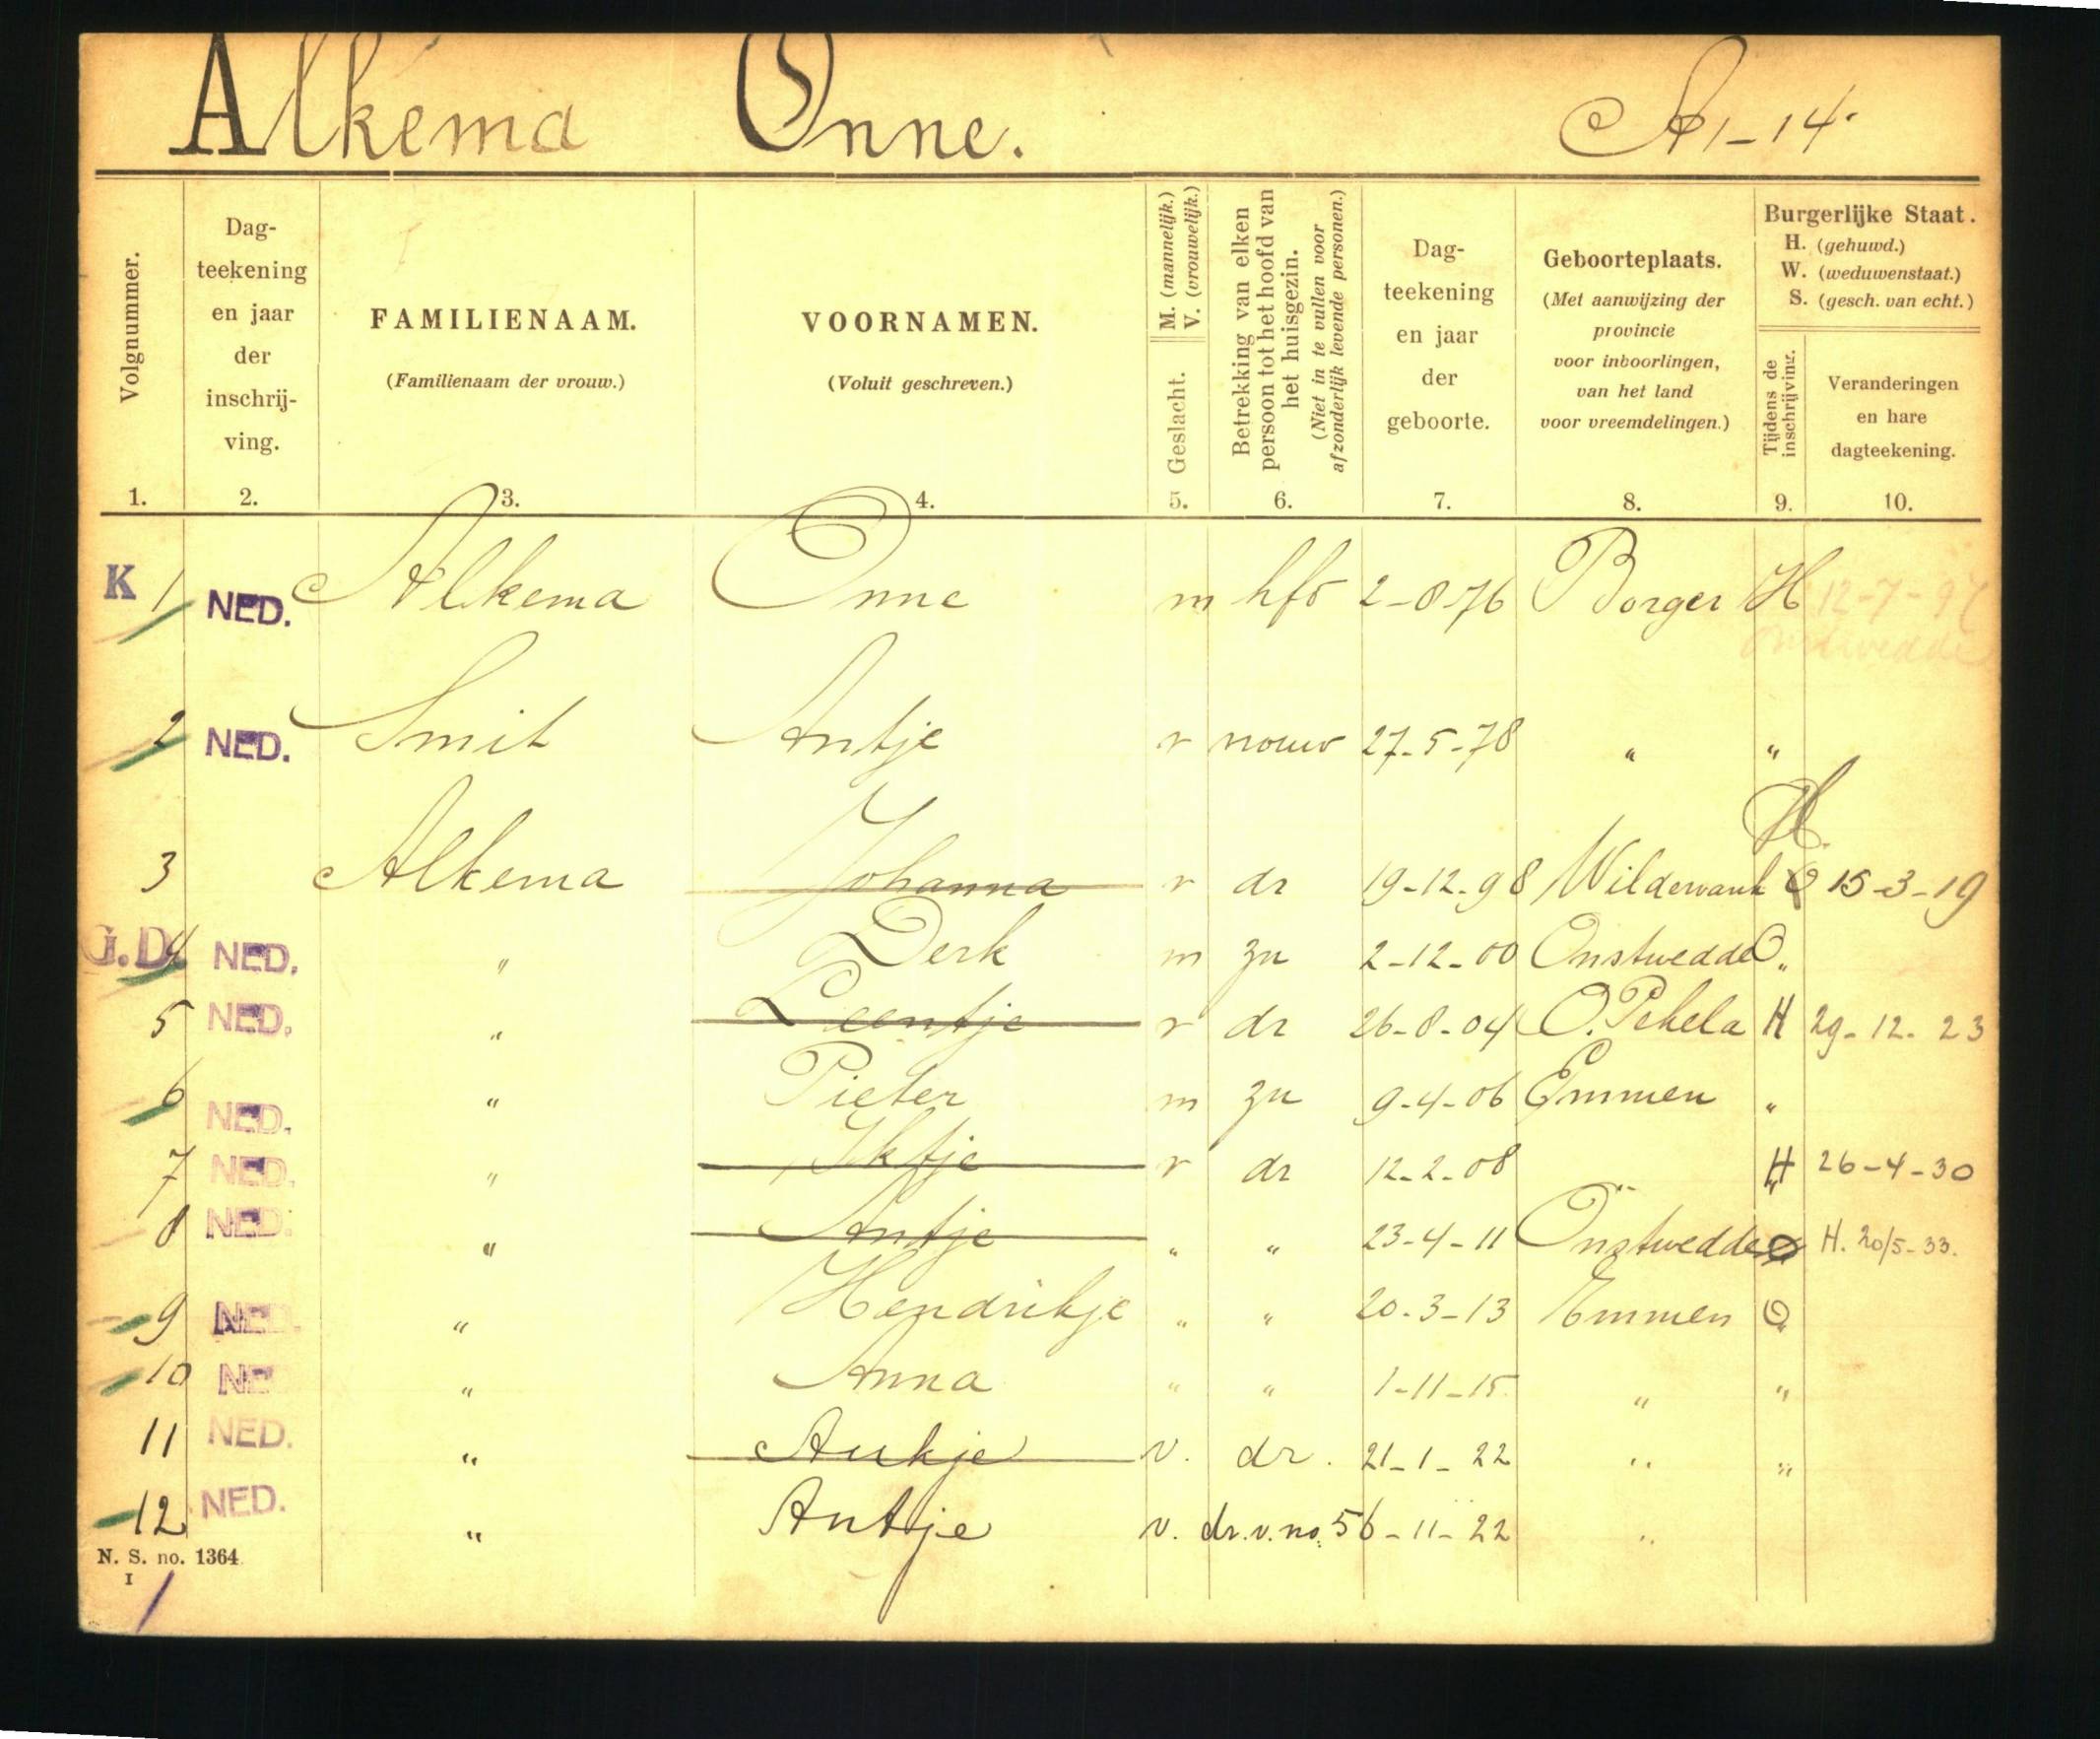 Alkema Onne. A 1-14.
Volgnummer. 1.
Dag-
teekening
en jaar
der
inschrij-
ving.
2.
FAMILIENAAM.
(Familienaam der vrouw.)
3.
VOORNAMEN.
(Voluit geschreven.)
4.
M. (mannelijk.)
V. (vrouwelijk.)
Geslacht.
5.
Betrekking van elken
persoon tot het hoofd van
het huisgezin.
(Niet in te vullen voor
afzonderlijk levende personen.)
6.
Dag-
teekening
en jaar
der
geboorte.
7.
Geboorteplaats.
(Met aanwijzing der
provincie
voor inboorlingen,
van het land
voor vreemdelingen.)
8.
Burgerlijke Staat.
H. (gehuwd.)
W. (weduwenstaat.)
S. (gesch. van echt.)
Tijdens de
inschrijving.
9.
Veranderingen
en hare
dagteekening.
10.
K 1 NED. Alkema Onne m hfd 2-8-76 Borger H 12-7-97
Onstwedde
2 NED. Smit Antje v vrouw 27-5-78 " "
H.
3 Alkema Johanna v dr 19-12-98 Wildervank O 15-3-19
G.D. 4 NED. " Derk m zn 2-12-00 Onstwedde O "
5 NED. " Leentje v dr 26-8-04 O. Pekela H 29-12-23
6 NED. " Pieter m zn 9-4-06 Emmen "
7 NED. " Iktje v dr 12-2-08 " H 26-4-30
8 NED. " Antje " " 23-4-11 Onstwedde O H. 20/5-33.
9 NED. " Hendrikje " " 20-3-13 Emmen O
10 NED " Anna " " 1-11-15 " "
11 NED. " Aukje v. dr. 21-1-22 " "
12 NED. " Antje v. dr. v. no. 5 6-11-22 "
N. S. no. 1364
I